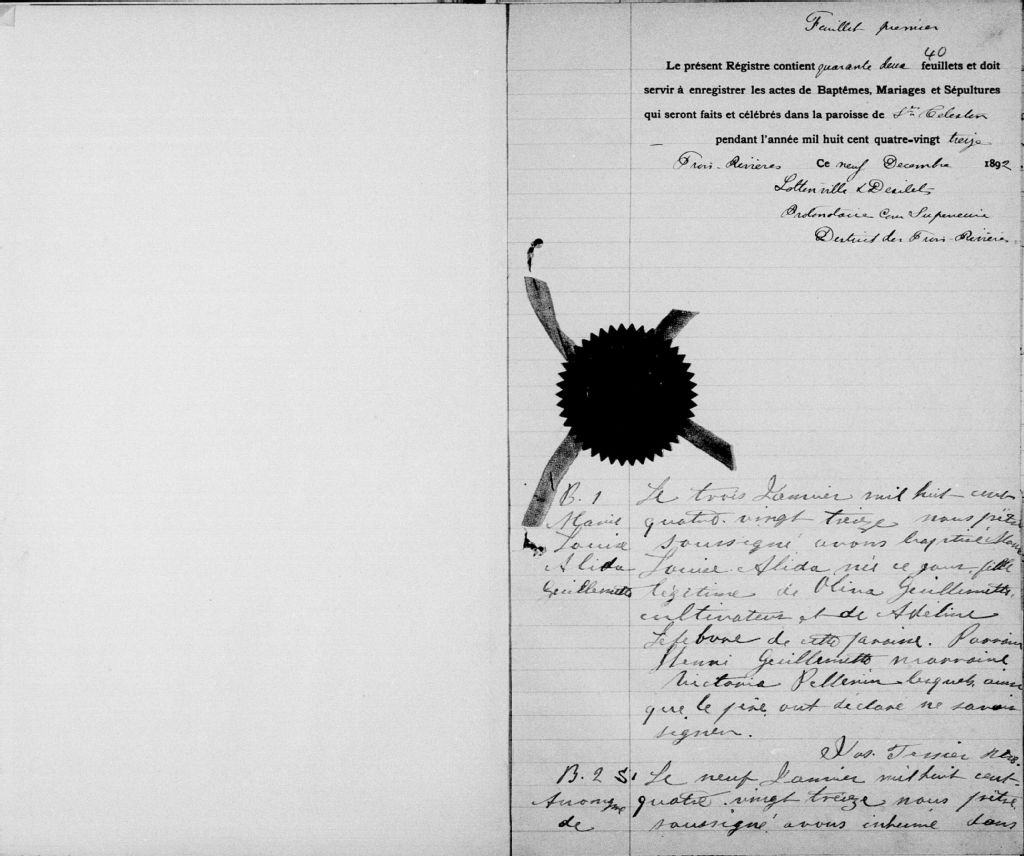 Feuillet premier
40
Le présent Régistre contient quarante deux feuillets et doit
servir à enregistrer les actes de Baptêmes, Mariages et Sépultures
qui seront faits et célébrés dans la paroisse de St Celestin
pendant l'année mil huit cent quatre-vingt treize
Trois-Rivières Ce neuf Decembre 1892
& Desilets
Protonotaire Cour Superieure
District des Trois-Rivières
B. 1
Marie
Louise
Alida
Guillemette
Le trois Janvier mil huit cent
quatre-vingt treize nous prêtre
soussigné avons baptisé Marie
Louise Alida née ce jour fille
légitime de Olina Guillemette
cultivateur et de Adeline
Lefebvre de cette paroisse. Parrain
Henri Guillemette marraine
Victoria Pellerin lesquels, ainsi
que le père, ont déclaré ne savoir
signer.
Jos. Tessier Ptre.
B. 2 S1
Anonyme
de
Le neuf Janvier mil huit cent
quatre-vingt treize nous prêtre
soussigné avons inhumé dans